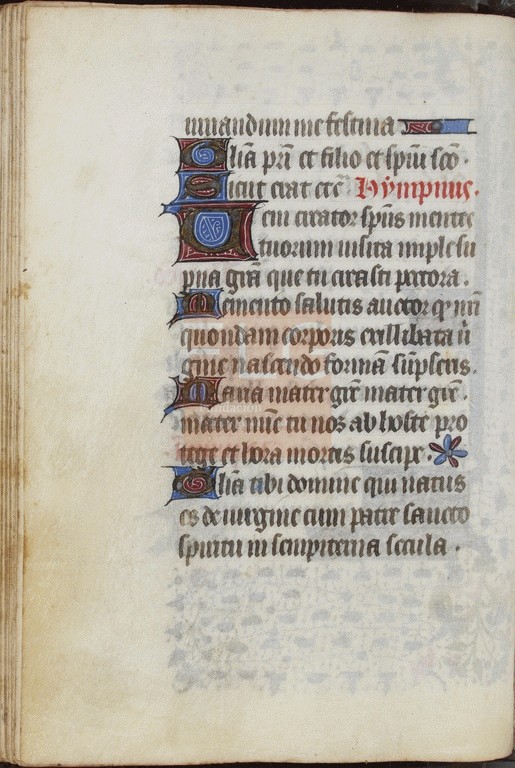 iuuandum me festina
Glia pri et filio et spiui sco.
Sicut erat etc Hympnus.
Ueni creator spus mentes
tuorum uisita imple su
pna gra que tu creasti pectora.
Memento salutis auctor q nri
quondam corporis ex illibata ui
gine nascendo formã sũpseris.
Maria mater gre mater gre.
mater mie tu nos ab hoste pro
tege et hora mortis suscipe.
Glia tibi domine qui natus
es de uirgine cum patre sancto
spiritu in sempiterna secula.
Fundación